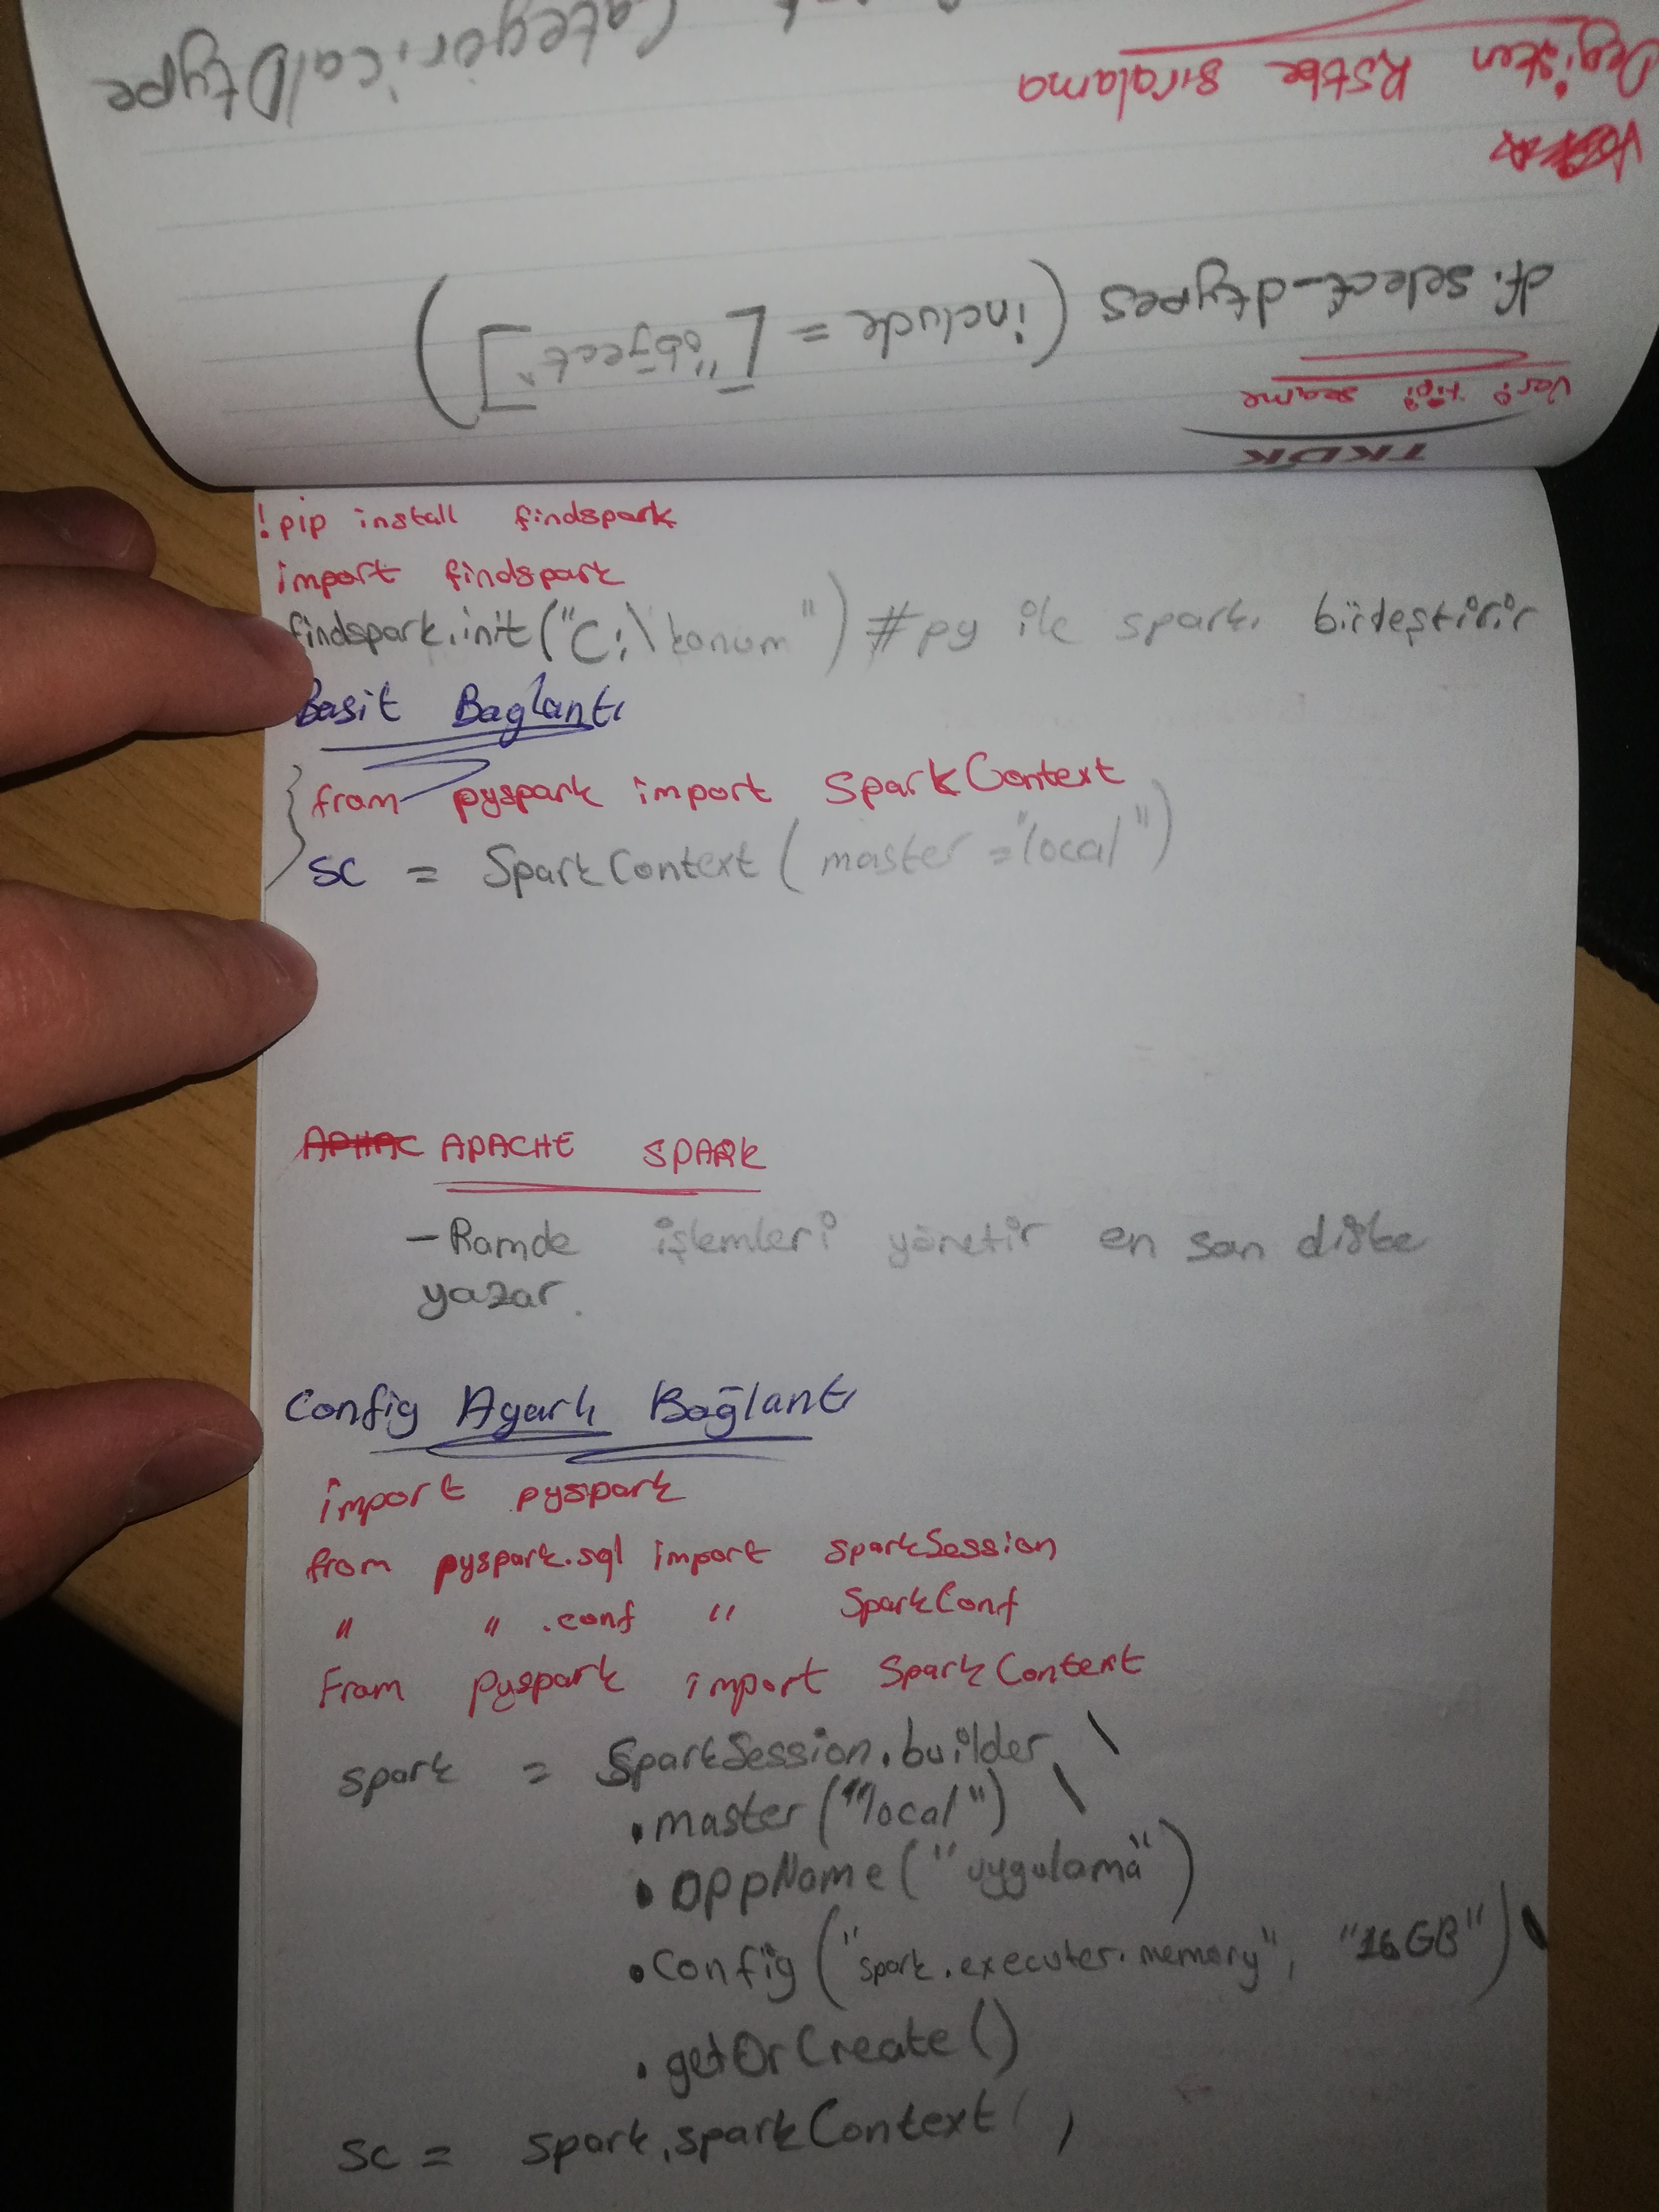 TKDK
Veri tipi seçme
df.select_dtypes (include = ["object"])
Değişken sıralama
CategoricalDtype
!pip install findspark
import findspark
findspark.init("C:\konum") #py ile sparkı birleştirir
Basit Bağlantı
from pyspark import SparkContext
sc = SparkContext (master = "local")
APACHE SPARK
- Ramde işlemleri yönetir en son diske
yazar.
Config Ayarlı Bağlantı
import pyspark
from pyspark.sql import sparkSession
" " .conf " SparkConf
From pyspark import SparkContext
spark = SparkSession.builder \
.master ("local") \
.appName ("uygulama")
.config ("spark.executer.memory", "16GB") \
.getOrCreate ()
sc = spark.sparkContext